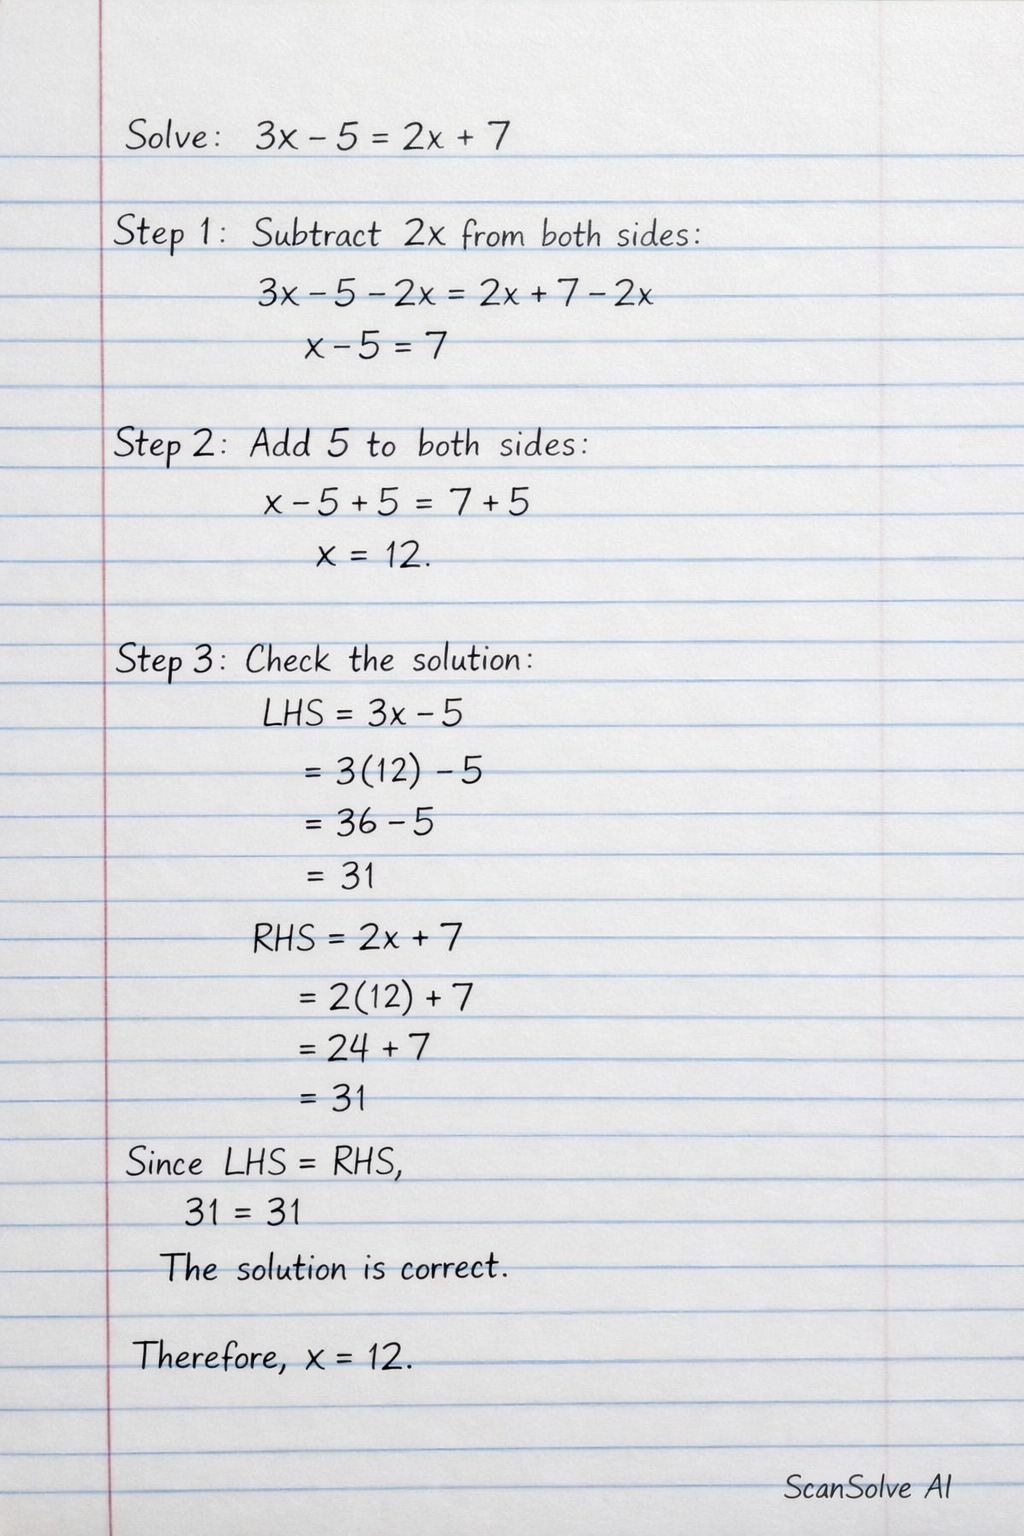 Solve: 3x – 5 = 2x + 7
Step 1: Subtract 2x from both sides:
3x – 5 – 2x = 2x + 7 – 2x
x – 5 = 7
Step 2: Add 5 to both sides:
x – 5 + 5 = 7 + 5
x = 12.
Step 3: Check the solution:
LHS = 3x – 5
= 3(12) – 5
= 36 – 5
= 31
RHS = 2x + 7
= 2(12) + 7
= 24 + 7
= 31
Since LHS = RHS,
31 = 31
The solution is correct.
Therefore, x = 12.
ScanSolve AI